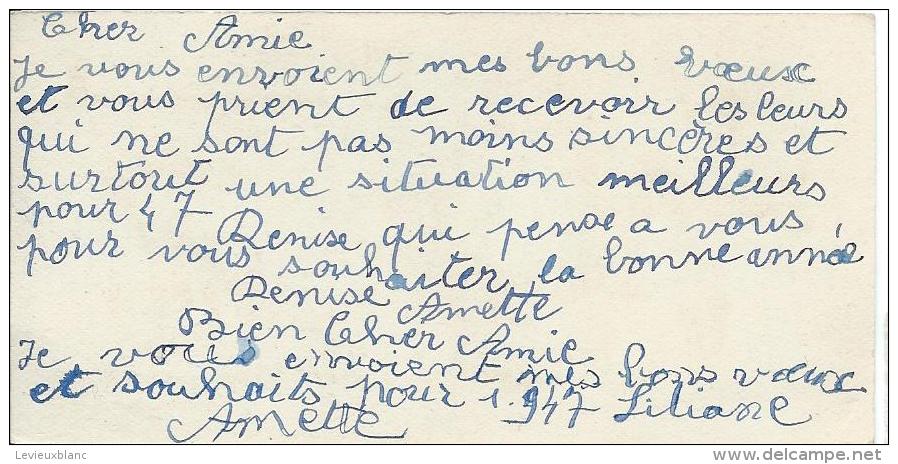 Cher Amie
Je vous envoient mes bons vœux
et vous prient de recevoir les leurs
qui ne sont pas moins sincères et
surtout une situation meilleurs
pour 47
Denise qui pense a vous
pour vous souhaiter la bonne année
Denise Amette
Bien Cher Amie
Je vous envoient mes bons vœux
et souhaits pour 1.947 Liliane
Amette
Levieuxblanc
delcampe.net